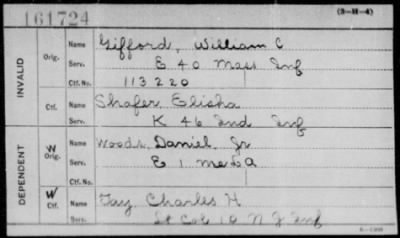 161724
(3-H-4)
INVALID
Orig.
Name Gifford, William C
Serv. E 40 Mass Inf
Ctf. No. 113220
Ctf.
Name Shafer, Elisha
Serv. K 46 Ind Inf
DEPENDENT
W
Orig.
Name Woods, Daniel, Jr
Serv. E 1 Me L A
Ctf. No.
W
Ctf.
Name Fay, Charles H
Serv. Lt Col 10 N J Inf